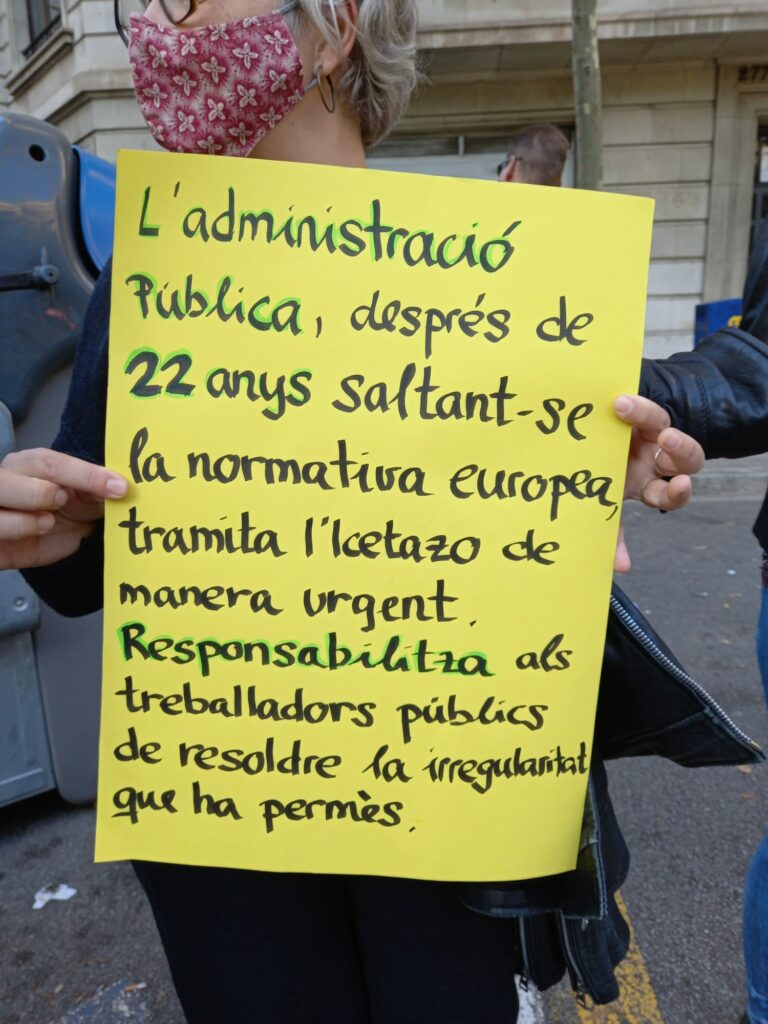 L'administració
Pública, després de
22 anys saltant-se
la normativa europea,
tramita l'Icetazo de
manera urgent.
Responsabilitza als
treballadors públics
de resoldre la irregularitat
que ha permès.
277